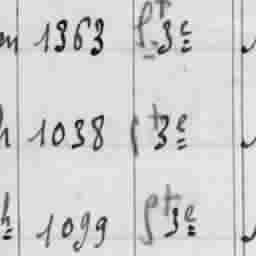 m 1363 St 3e
h 1038 St 3e
h 1099 St 3e